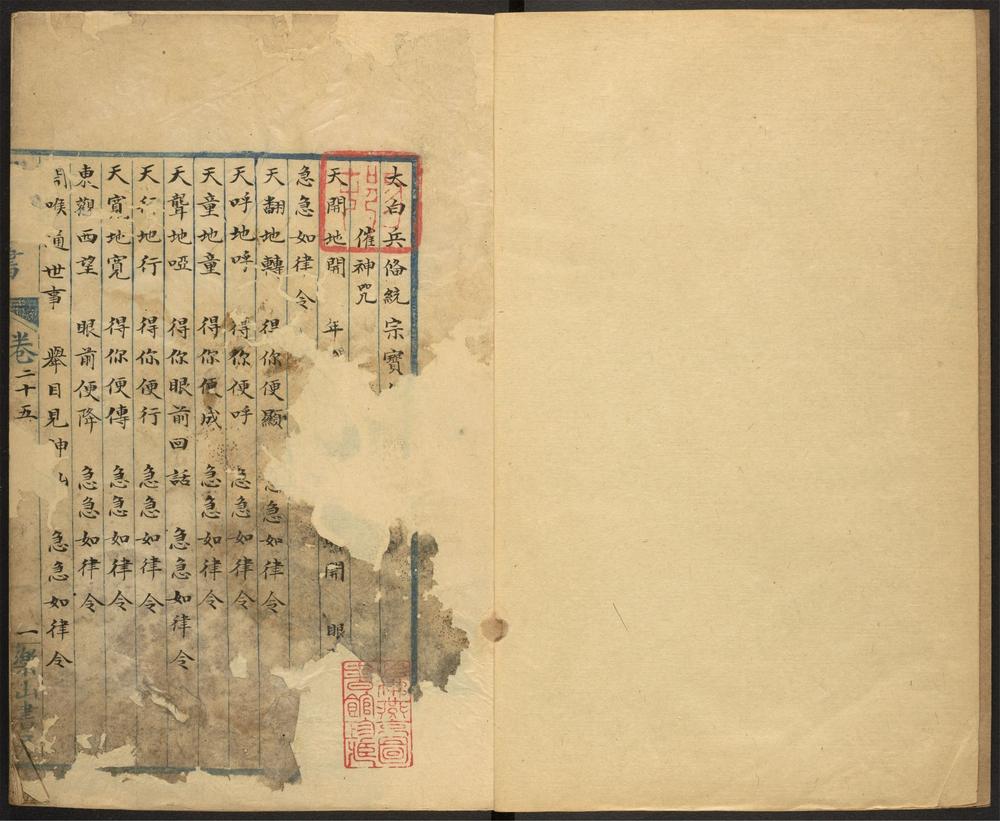 太白兵俻統宗寳
催神咒
天開地開 年 開 眼
急急如律令
天翻地轉 得你便顯 急急如律令
天呼地呼 得你便呼 急急如律令
天童地童 得你便成 急急如律令
天聾地啞 得你眼前回話 急急如律令
天行地行 得你便行 急急如律令
天寛地寛 得你便傳 急急如律令
東觀西望 眼前便降 急急如律令
喉通世事 舉目見 急急如律令
書 卷二十五 一 樂山書